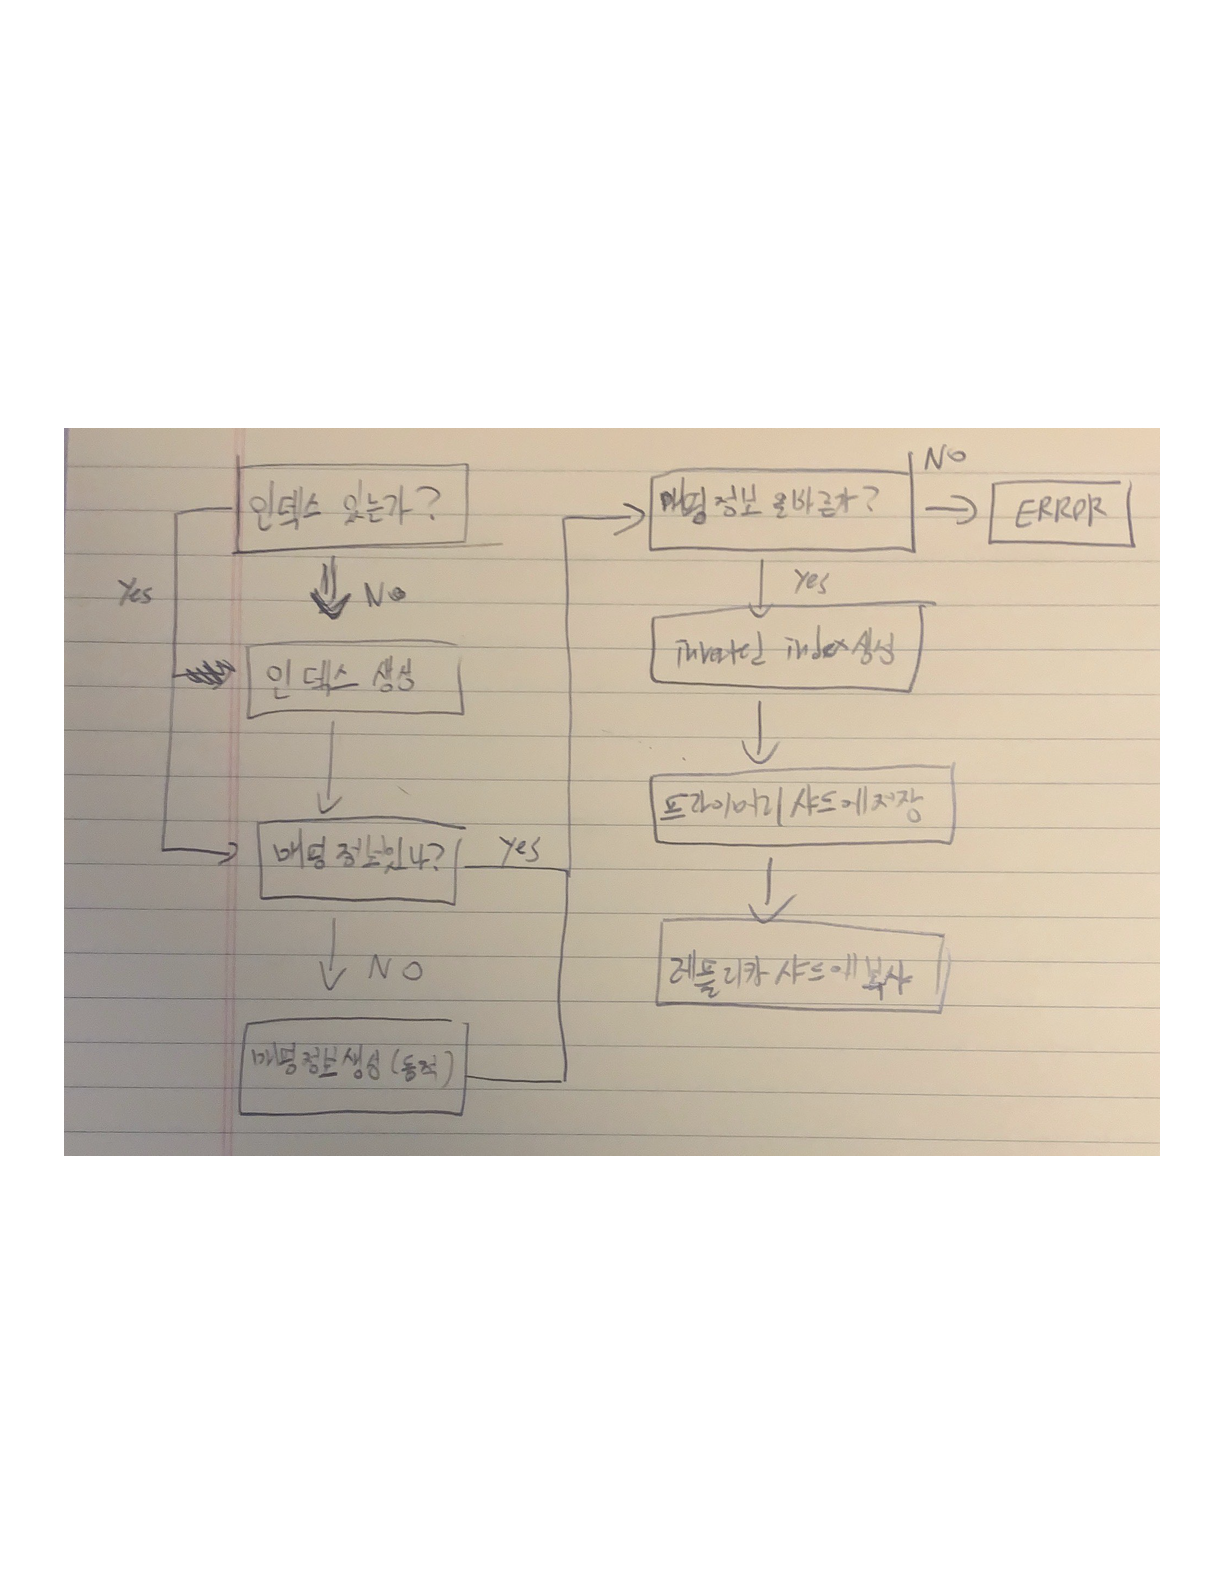 인덱스 있는가?
Yes
No
인덱스 생성
매핑 정보있나?
yes
NO
매핑정보생성(동적)
매핑정보 올바른가?
NO
ERROR
yes
index생성
프라이머리 샤드에저장
레플리카 샤드에 복사